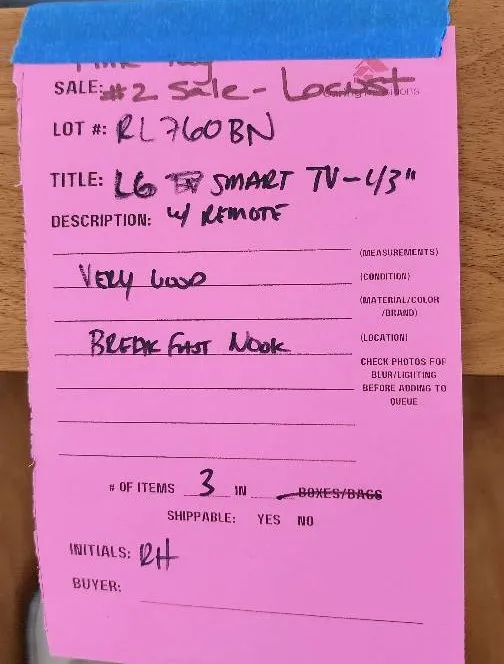 SALE: #2 Sale - Locust
LOT #: RL760BN
TITLE: LG SMART TV - 43"
DESCRIPTION: W/ REMOTE
(MEASUREMENTS)
VERY GOOD (CONDITION)
(MATERIAL/COLOR
/BRAND)
BREAKFAST NOOK (LOCATION)
CHECK PHOTOS FOR
BLUR/LIGHTING
BEFORE ADDING TO
QUEUE
# OF ITEMS 3 IN BOXES/BAGS
SHIPPABLE: YES NO
INITIALS: RH
BUYER: